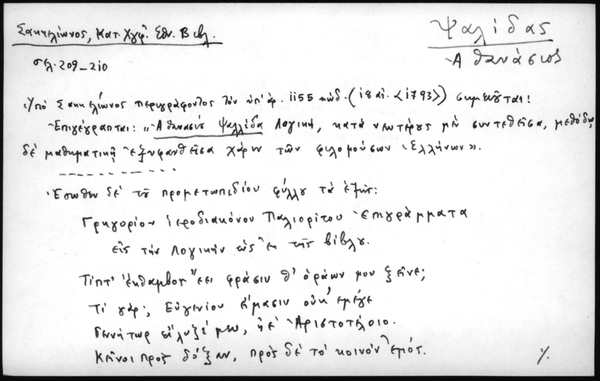 Σακκελίωνος, Κατ. Χγφ. Εθν. Βιβλ.
Ψαλίδας
Ἀθανάσιος
σελ. 209-210
Ὑπὸ Σακκελίωνος περιγράφοντος τὸν ὑπ' ἀρ. 1155 κώδ. (18 αἰ. <1793>) σημειοῦται:
Ἐπιγέγραπται: "Ἀθανασίου Ψαλλίδα Λογική, κατὰ νεωτέρους μὲν συντεθεῖσα, μεθόδῳ
δὲ μαθηματικῇ ἐξυφανθεῖσα χάριν τῶν φιλομούσων Ἑλλήνων".
Ἔσωθεν δὲ τοῦ προμετωπιδίου φύλλου τὰ ἑξῆς:
Γρηγορίου ἱεροδιακόνου Παλιορίτου ἐπιγράμματα
εἰς τὴν Λογικὴν ὡς ἐκ τῆς βίβλου.
Τίπτ' ἐκθαμβοῖ φράσιν θ' ὁράων μου ξεῖνε;
Τί γάρ; Εὐγενίου εἵμασιν οὐκ
Γεννήτωρ μευ, ἠὲ Ἀριστοτέλοιο.
Κεῖνοι πρὸς δόξαν, πρὸς δὲ τὸ κοινὸν ἐμός.
%